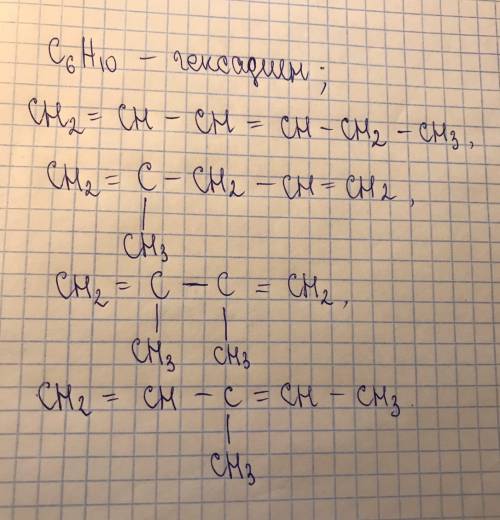 C₆H₁₀ – гексадиен;
CH₂ = CH – CH = CH – CH₂ – CH₃,
CH₂ = C – CH₂ – CH = CH₂,
|
CH₃
CH₂ = C – C = CH₂,
| |
CH₃ CH₃
CH₂ = CH – C = CH – CH₃.
|
CH₃